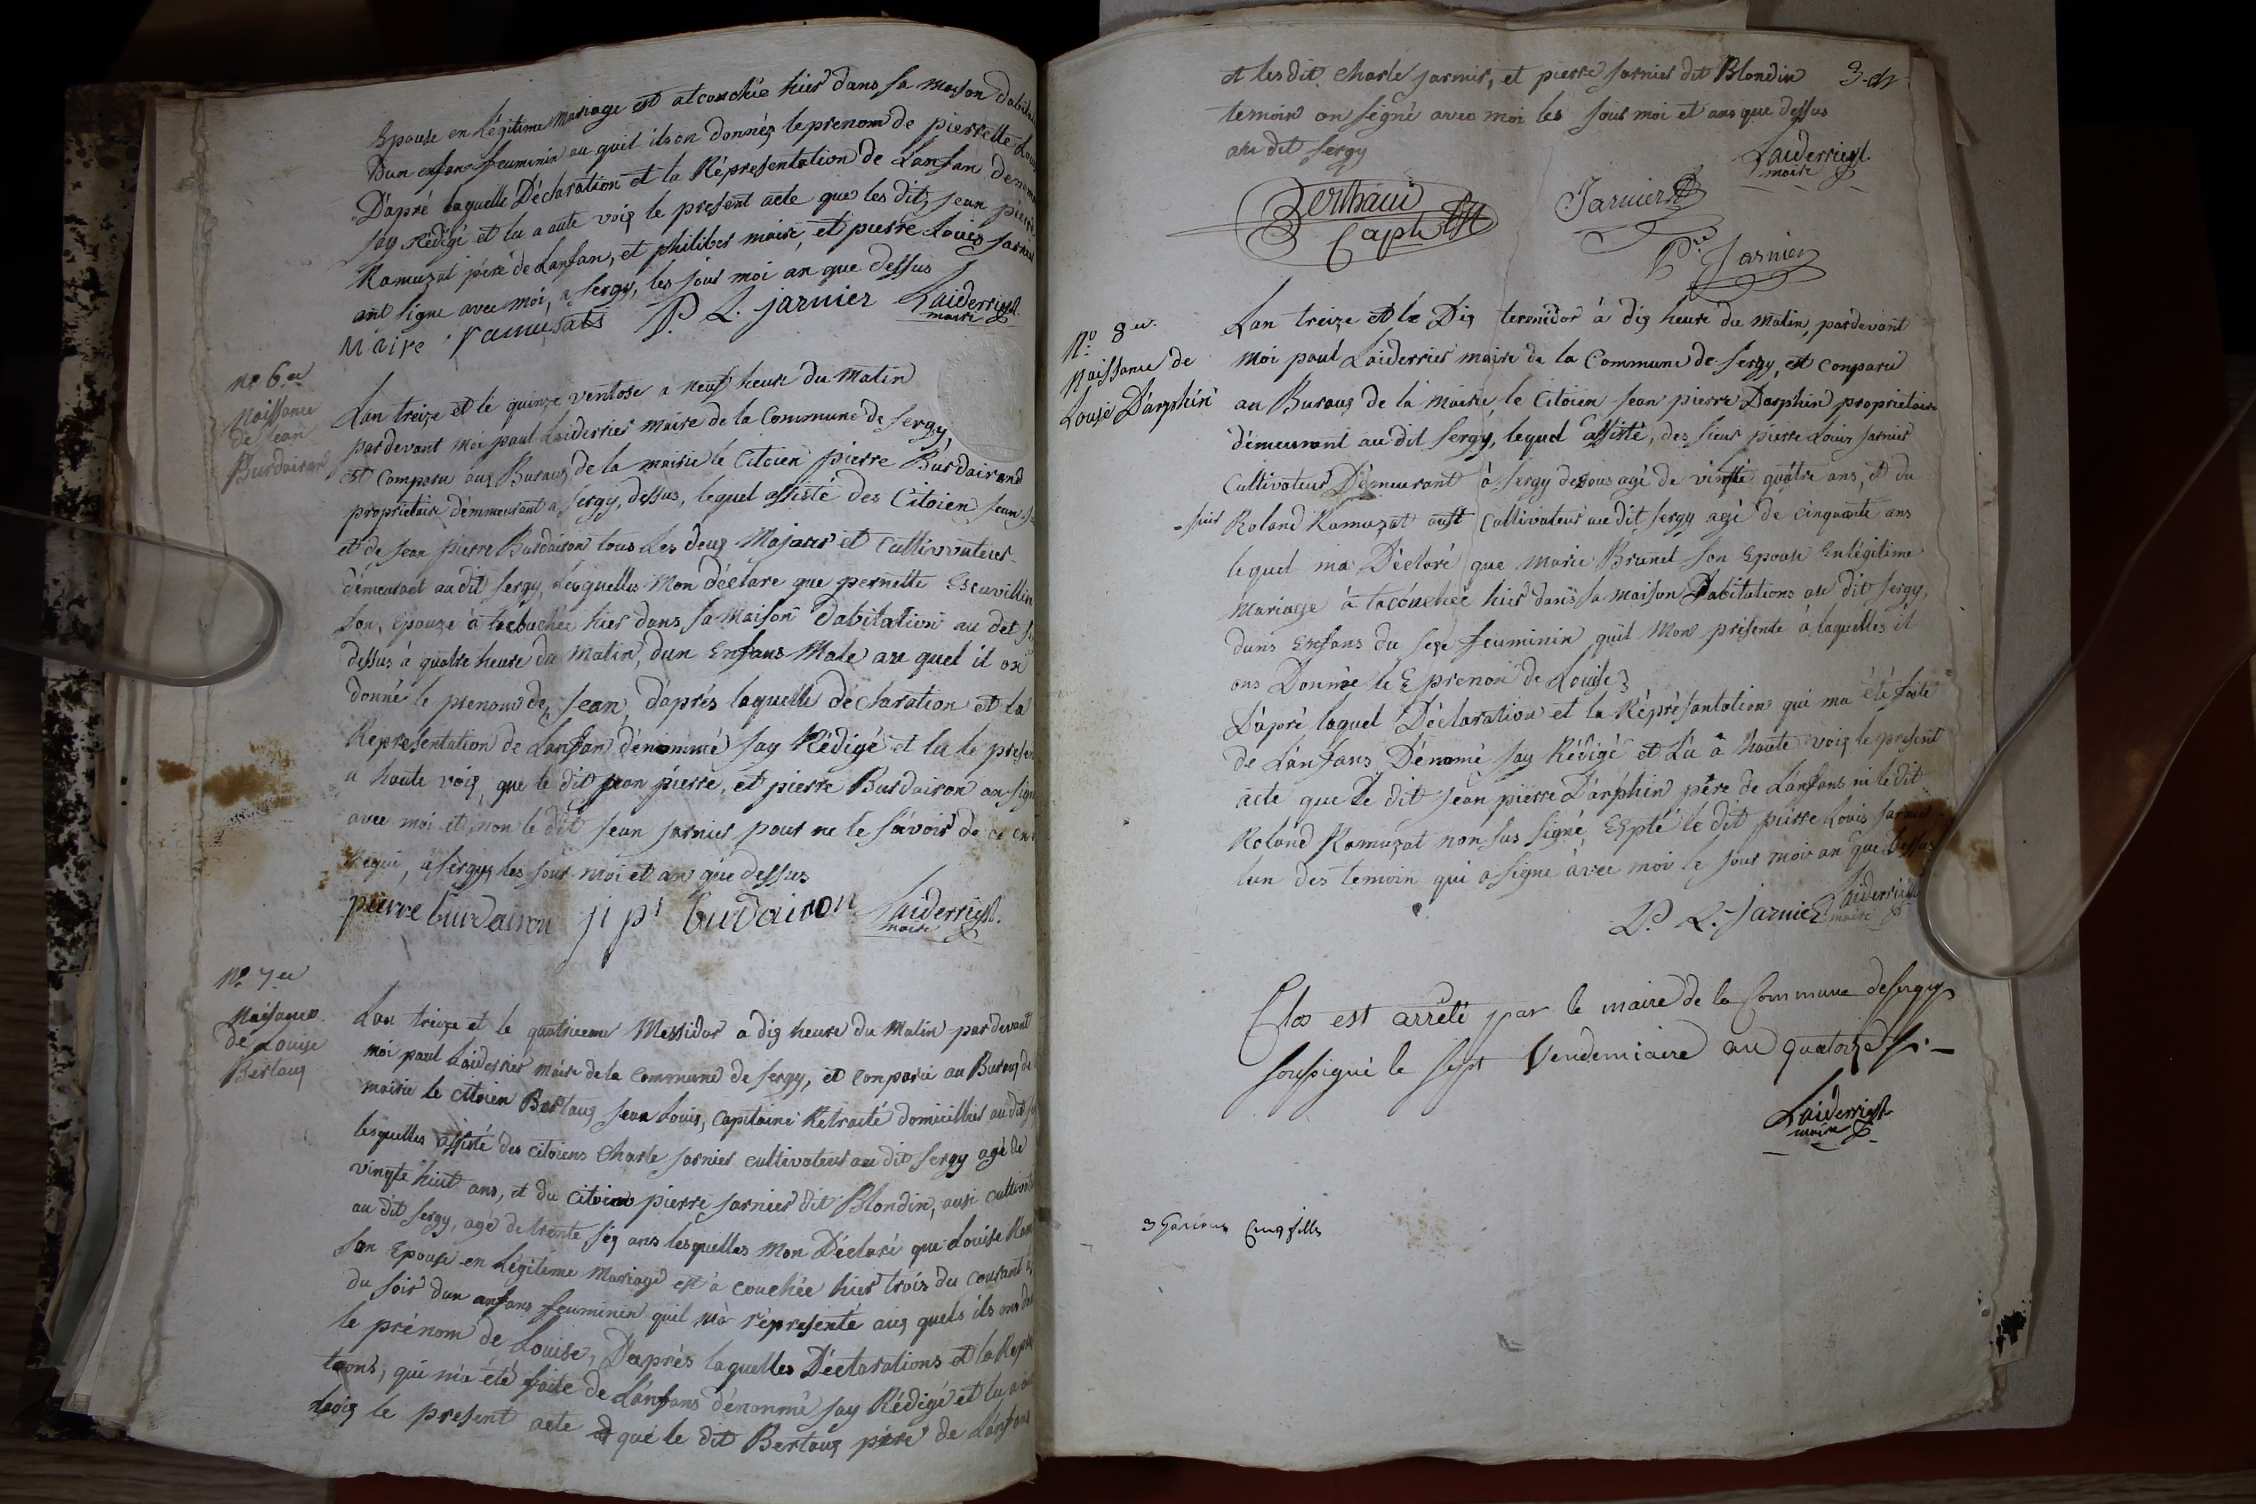 Epouse en Légitime Mariage est atcouchée hier dans sa maison d'abita
Dun enfans feuminin au quil ils on donnéz le prenom de pierrette Loui
D'apré laquelle Déclaration et la Réprésentation de L'anfan denommé
jay Rédigé et lu a aute voix le present acte que les dit, jean pierre
Ramuzat péré de Lanfan, et philiber maire, et pierre Louis jarnier
ont signe avec moi, a Sergy, les jour moi an que dessus
Maire ramusats P. L. jarnier Laiderrier
maire
No. 6.eu
Naissance
de Jean
Burdairon
Lan treize et le quinze ventose a neuf heure du matin
pardevant moi paul Laiderrier maire de la Commune de Sergy,
est Comparu aux Buraux de la mairie le Citoien pierre Burdairond
proprietaire démmeurant a Sergy, dessus, lequel assisté des Citoien jean
et de jean pierre Burdairon tous Les deux Majeurs et Cultivvateurs
démeurant audit Sergy, Lesquelles Mon déclare que pernette Escuvillin
son, Epouze à tacbuchée hier dans sa Maison d'abitation au dit
dessus à quatre heure du Matin, dun Enfans Male au quel il on
donné le prenom de, jean, daprés laquelle déclaration et la
Representation de Lanfan dénommé jay Rédigé et lu le présen
a haute voix, que le dit jean pierre, et pierre Burdairon on signé
avec moi et non le dit jean jarnier pour ne le savoir de ce en
Requi, a Sergy, les jour moi et an que dessus
pierre burdairon ji pr burdairon Laiderrier
maire
No. 7.eu
Naisance
de Louise
Bertaux
Lan treize et le quatrieeme Messidor a dix heure du Matin pardevant
moi paul Laiderrier maire de la Commune de Sergy, et Conparu au Buraux de
mairie le citoien Bertaux jean Louis, Capitaine Rétraité domicillier au dit
lesquelles assisté des citoiens Charle jarnier cultivateur au dit Sergy agé de
vingte huit ans, et du citoien pierre jarnier dit Blondin, ausi cultivat
au dit Sergy, agé de trente six ans lesquelles Mon Déclaré que Louise
son Epouse en Légitime Mariage est à couchée hier trois du courant
du soir dun anfans feuminin quil ma réprésenté aux quels ils ons
le prénom de Louise, Daprés laquelles Déclarations et la
tions, qui ma été faite de Lanfans dénommé jay Rédigé et lu a
voix le present acte que le dit Bertaux père de Lanfans
3
et les dit Charle jarnier, et pierre jarnier dit Blondin
temoin on signé avec moi les jour moi et ans que dessus
au dit Sergy
Laiderrier
maire
Berthaud
Capt
Jarnier
Pre Jarnier
No. 8.eu
Naissance de
Louise Darphin
Lan treize et le Dix termidor à dix heure du Matin, pardevant
moi paul Laiderrier maire de la Commune de Sergy, est Conparu
au Buraux de la Mairie, le Citoien jean pierre Darphin proprietaire
démeurant au dit Sergy, lequel assisté, des sieur pierre Louis jarnier
Cultivateur Démeurant à Sergy desous agé de vinte quatre ans, et du
sieur Roland Ramuzat aust Cultivateur au dit Sergy agé de cinquante ans
lequel ma Déclaré que Marie Brunet son Epouse En légitime
Mariage à tacouchée hier dans sa maison Dabitations au dit Sergy,
duns Enfans du sexe feuminin quil Mon présente à laquelles il
ons Donnée le prenon de Louise
Dapré laquel Déclaration et la Réprésantation qui ma été faite
de L'anfans Dénomé jay Rédigé et Lu à haute voix le present
acte que Le dit jean pierre Darphin père de L'anfans ni le dit
Roland Ramuzat non sus signé, Expté le dit pierre Louis jarnier
lun des temoin qui a signé avec moi le jour mois an que dessus
P. L. jarnier Laiderrier
maire
Clos est arrêté par le maire de la Commune de Sergy
soussigné le Sept Vendemiaire an quatorze
Laiderrier
maire
3 Garcons Cinq filles